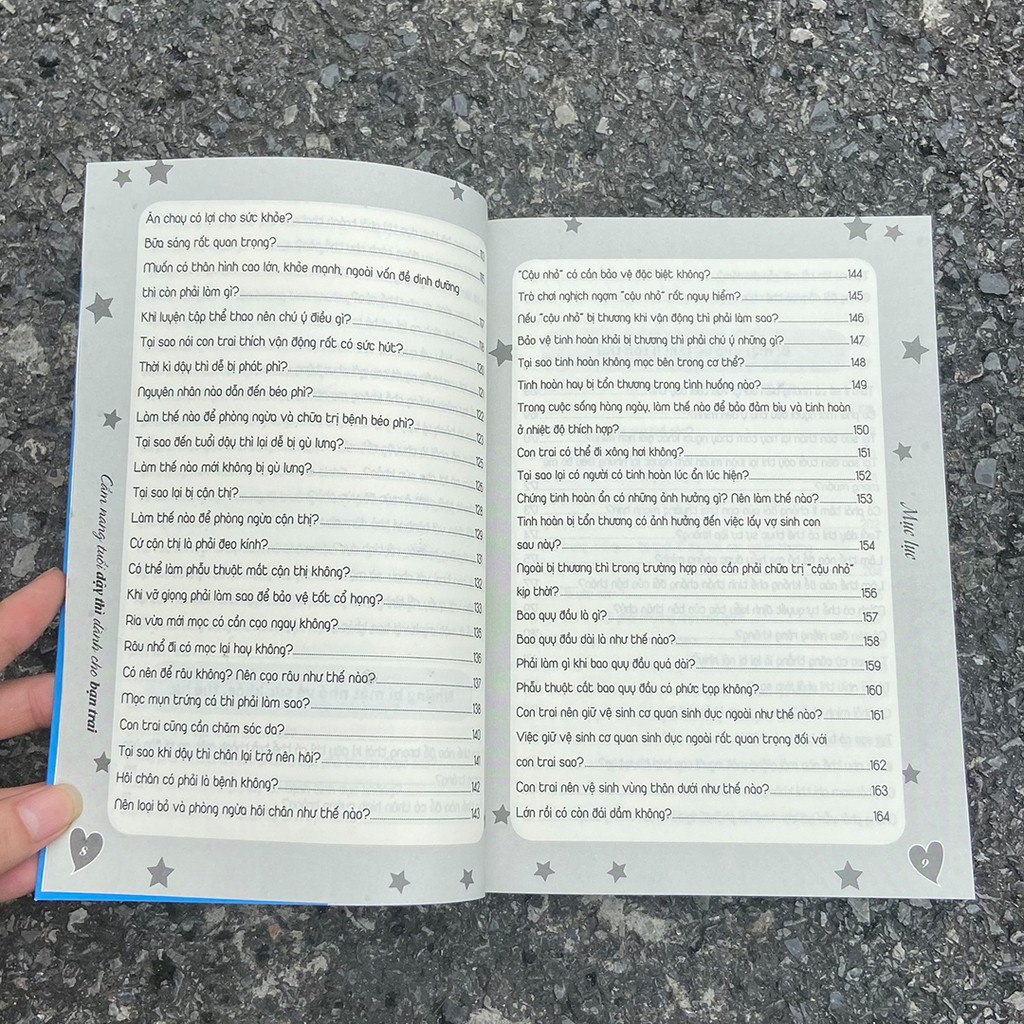 Ăn chay có lợi cho sức khỏe? 113
Bữa sáng rất quan trọng? 115
Muốn có thân hình cao lớn, khỏe mạnh, ngoài vấn đề dinh dưỡng
thì còn phải làm gì? 117
Khi luyện tập thể thao nên chú ý điều gì? 118
Tại sao nói con trai thích vận động rất có sức hút? 120
Thời kì dậy thì dễ bị phát phì? 121
Nguyên nhân nào dẫn đến béo phì? 122
Làm thế nào để phòng ngừa và chữa trị bệnh béo phì? 123
Tại sao đến tuổi dậy thì lại dễ bị gù lưng? 125
Làm thế nào mới không bị gù lưng? 126
Tại sao lại bị cận thị? 128
Làm thế nào để phòng ngừa cận thị? 129
Cứ cận thị là phải đeo kính? 131
Có thể làm phẫu thuật mắt cận thị không? 132
Khi vỡ giọng phải làm sao để bảo vệ tốt cổ họng? 133
Ria vừa mới mọc có cần cạo ngay không? 135
Râu nhổ đi có mọc lại hay không? 136
Có nên để râu không? Nên cạo râu như thế nào? 137
Mọc mụn trứng cá thì phải làm sao? 138
Con trai cũng cần chăm sóc da? 140
Tại sao khi dậy thì chân lại trở nên hôi? 141
Hôi chân có phải là bệnh không? 142
Nên loại bỏ và phòng ngừa hôi chân như thế nào? 143
Cẩm nang tuổi dậy thì dành cho bạn trai
8
"Cậu nhỏ" có cần bảo vệ đặc biệt không? 144
Trò chơi nghịch ngợm "cậu nhỏ" rất nguy hiểm? 145
Nếu "cậu nhỏ" bị thương khi vận động thì phải làm sao? 146
Bảo vệ tinh hoàn khỏi bị thương thì phải chú ý những gì? 147
Tại sao tinh hoàn không mọc bên trong cơ thể? 148
Tinh hoàn hay bị tổn thương trong tình huống nào? 149
Trong cuộc sống hàng ngày, làm thế nào để bảo đảm bìu và tinh hoàn
ở nhiệt độ thích hợp? 150
Con trai có thể đi xông hơi không? 151
Tại sao lại có người có tinh hoàn lúc ẩn lúc hiện? 152
Chứng tinh hoàn ẩn có những ảnh hưởng gì? Nên làm thế nào? 153
Tinh hoàn bị tổn thương có ảnh hưởng đến việc lấy vợ sinh con
sau này? 154
Ngoài bị thương thì trong trường hợp nào cần phải chữa trị "cậu nhỏ"
kịp thời? 156
Bao quy đầu là gì? 157
Bao quy đầu dài là như thế nào? 158
Phải làm gì khi bao quy đầu quá dài? 159
Phẫu thuật cắt bao quy đầu có phức tạp không? 160
Con trai nên giữ vệ sinh cơ quan sinh dục ngoài như thế nào? 161
Việc giữ vệ sinh cơ quan sinh dục ngoài rất quan trọng đối với
con trai sao? 162
Con trai nên vệ sinh vùng thân dưới như thế nào? 163
Lớn rồi có còn đái dầm không? 164
Mục lục
9